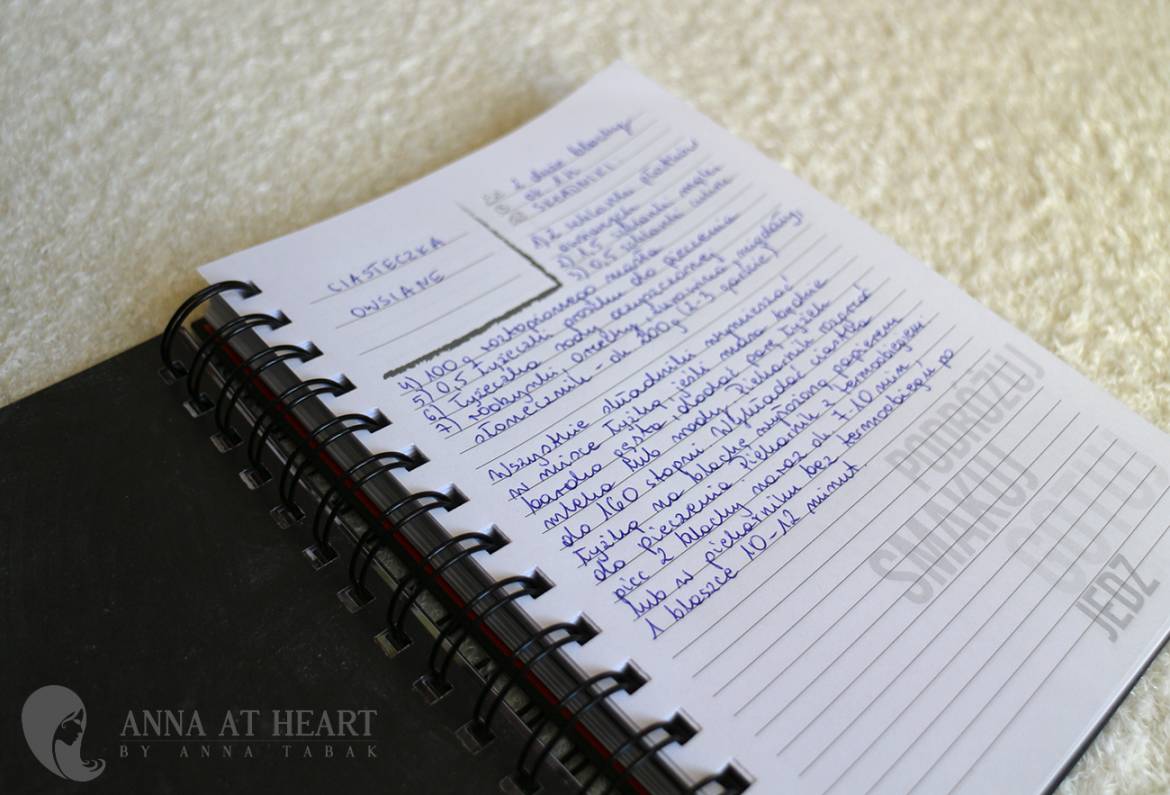 CIASTECZKA
OWSIANE
2 duże blachy
ok 1h
ŚREDNIE
1) 2 szklanki płatków
owsianych
2) 1,5 szklanki mąki
3) 0,5 szklanki cukru
4) 100 g roztopionego masła
5) 0,5 łyżeczki proszku do pieczenia
6) łyżeczka sody oczyszczonej
7) rodzynki, orzechy, żurawina, migdały,
słonecznik - ok 200g (2-3 garście)
Wszystkie składniki wymieszać
w misce łyżką, jeśli masa będzie
bardzo gęsta, dodać parę łyżek
mleka lub wody. Piekarnik nagrzać
do 160 stopni. Wykładać ciastka
łyżką na blachę wyłożoną papierem
do pieczenia. Piekarnik z termoobiegiem
piec 2 blachy naraz ok 7-10 min
lub w piekarniku bez termoobiegu po
1 blaszce 10-12 minut
PODRÓŻUJ
SMAKUJ
GOTUJ
JEDZ
ANNA AT HEART
BY ANNA TABAK